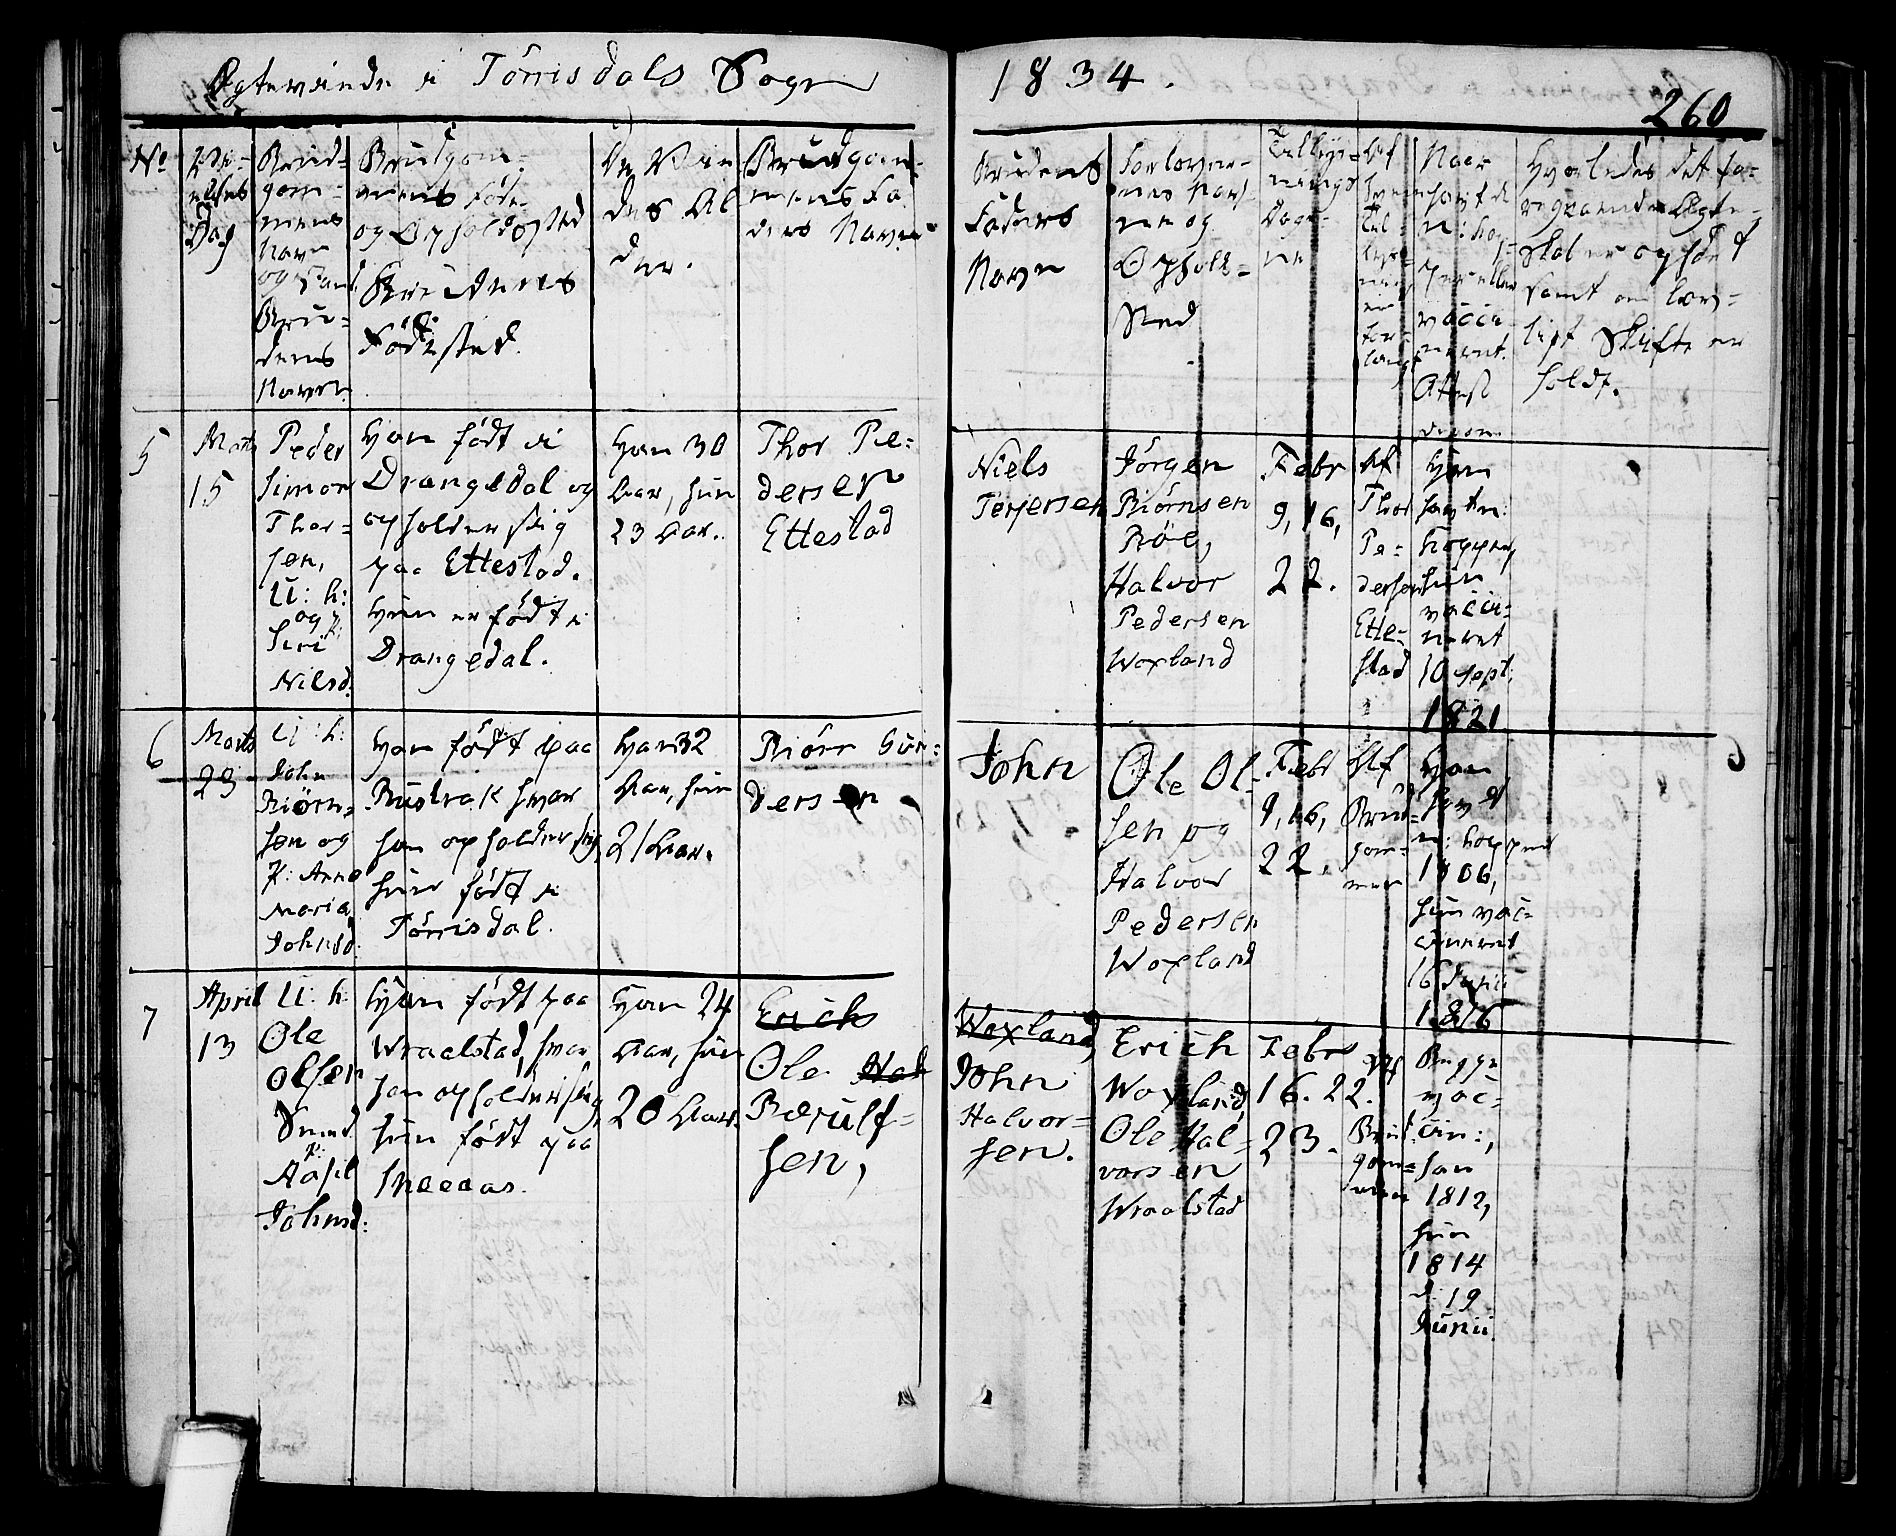 Ægteviede i Törrisdals Sogn
1834.
260
No
Vi-
elses
Dag
Brud-
gom-
mens
Navn
og Stand
Bru-
dens
Navn
Brudgom-
mens Føde-
og Opholdssted
Brudens
Födested.
De Vie
des Al
der.
Brudgom-
mens Fa
ders Navn
Brudens
Faders
Navn
Forlover-
nes Nav-
ne og
Opholds-
Sted
Tillys-
nings
Dage-
ne
Af
hvem
Til-
lys-
ning
er
for-
langt
Naar
havt de
n: Kop-
per eller
vacci-
neret.
Attest
derom
Hvorledes det fo-
regaaende Ægte-
skab er ophævet
samt om lov-
ligt Skifte er
holdt.
5
Marts
15
Peder
Simon
Thor-
sen,
U: k:
og p:
Siri
Nilsd.
Han født i
Drangedal og
opholder sig
paa Ettestad.
Hun er født i
Drangedal.
Han 30
Aar, hun
23 Aar.
Thor Pe-
dersen
Ettestad
Niels
Terjersen
Jörgen
Biörnsen
Böe,
Halvor
Pedersen
Woxland
Febr
9, 16,
22.
Af
Thor
Pe-
dersen
Ette-
stad
Han
havt n:
Kopper,
hun
vacci-
neret
10 Sept:
1821
6
Marts
23
U: k:
John
Biörn-
sen og
p: Anne
Maria
Johnsd.
Han født paa
Bustrak hvor
han opholder sig,
hun født i
Törrisdal.
Han 32
Aar, hun
21 Aar.
Biörn Gun-
dersen
John
Ole Ol-
sen og
Halvor
Pedersen
Woxland
Febr
9, 16,
22.
Af
Brud-
gom-
men
Han
havd
n: Kopper
1806,
hun vac-
cineret
16 Junii
1816
7
April
13
U: k:
Ole
Olsen
Smed
p:
Aasil
Johnsd:
Han født paa
Wraalstad, hvor
han opholder sig,
hun født paa
Han 24
Aar, hun
20 Aar.
Erich
Ole Hal
Bærulf-
sen,
Woxland,
John
Halvor-
sen.
Erich
Woxland,
Ole Hal-
vorsen
Wraalstad
Febr
16. 22.
23.
Af
Brud-
gom-
men
Begge
vac-
cin:,
han
1812,
hun
1814
d: 19
Junii.